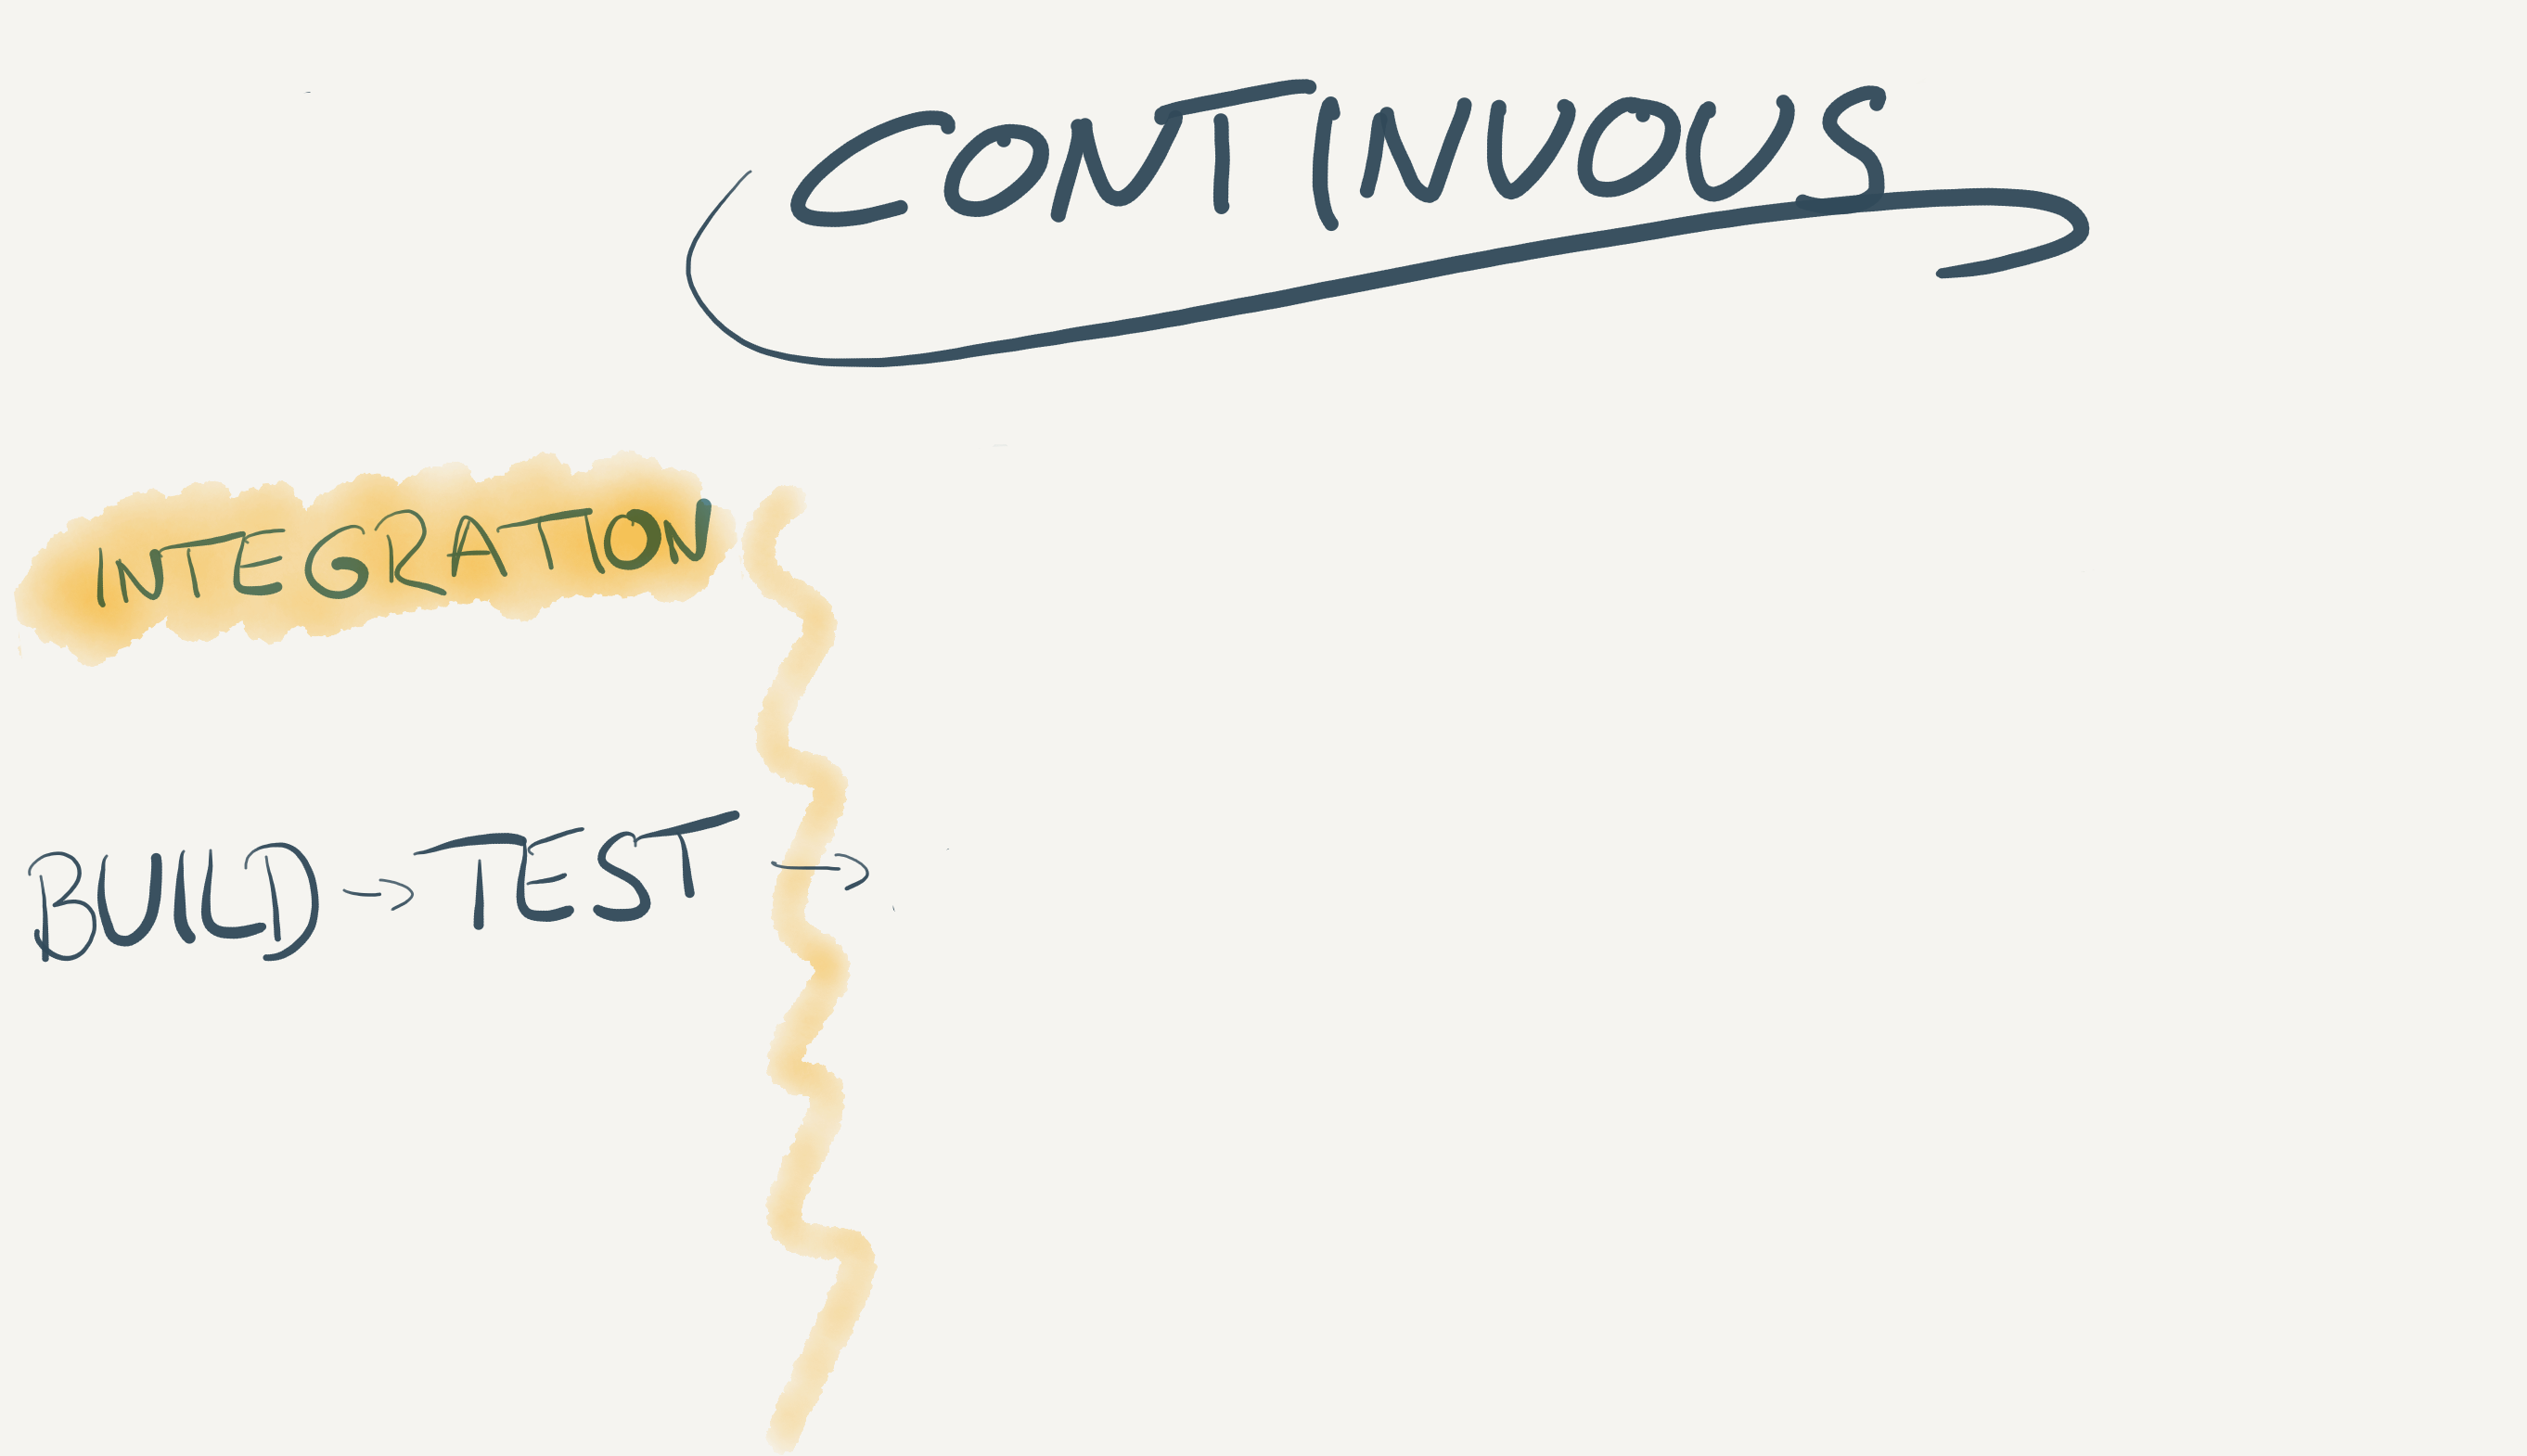 CONTINUOUS
INTEGRATION
BUILD → TEST →